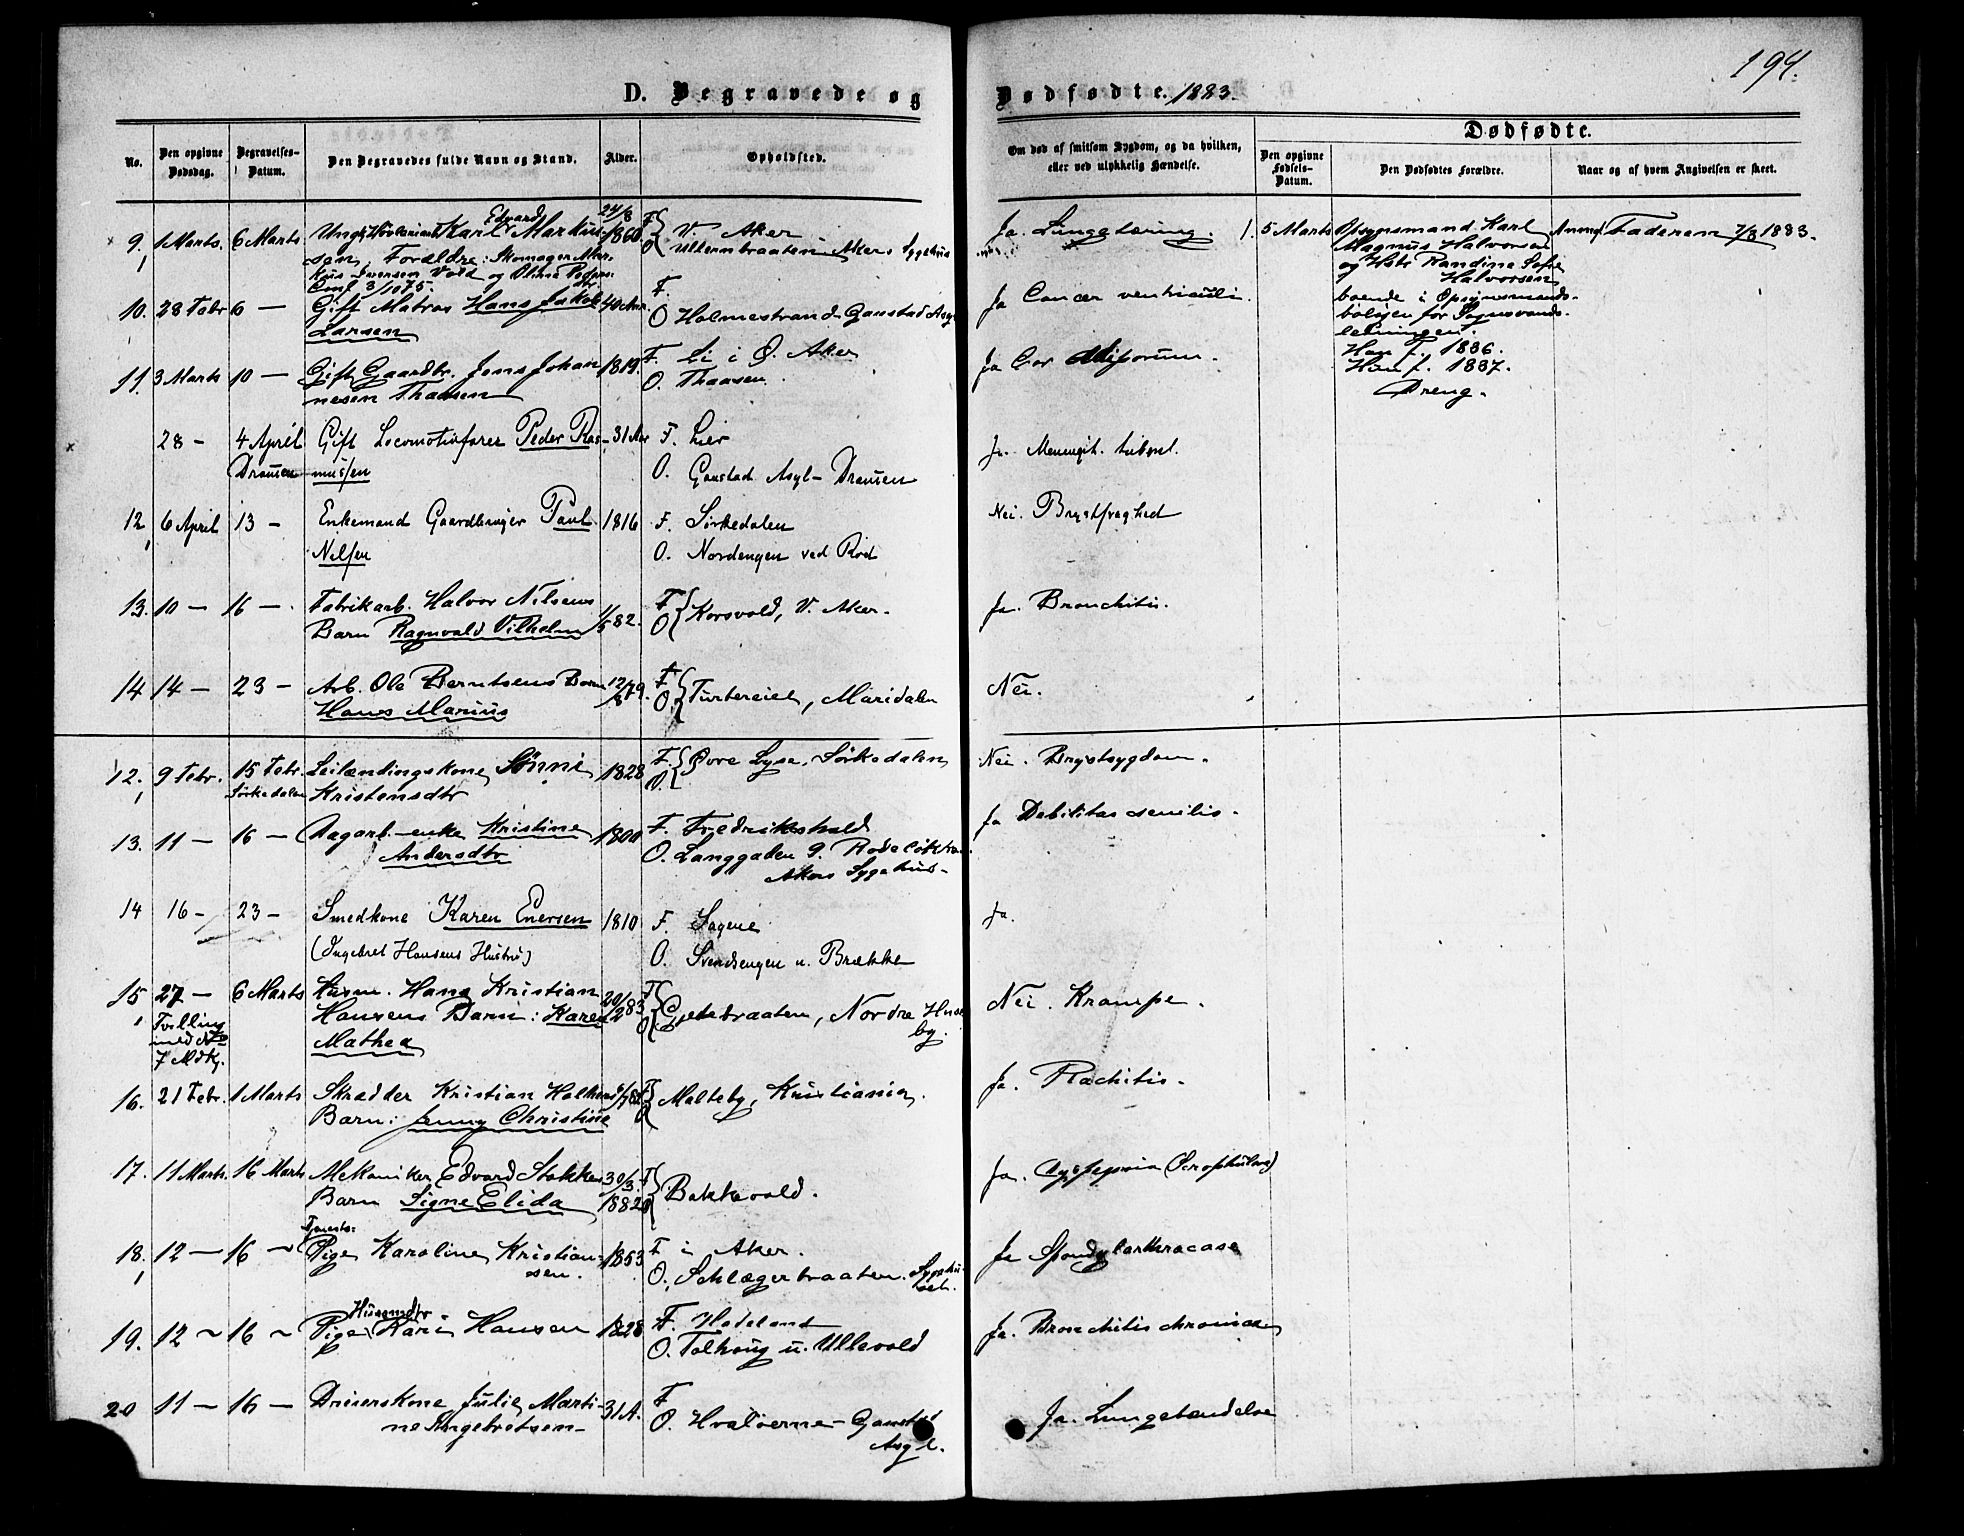 194.
D. Begravede og
Dødfødte. 1883.
No.
Den opgivne Dødsdag.
Begravelses-Datum.
Den Begravedes fulde Navn og Stand.
Alder.
Opholdsted.
Om død af smitsom Sygdom, og da hvilken, eller ved ulykkelig Hændelse.
Dødfødte.
Den opgivne Fødsels-Datum.
Den Dødfødtes Forældre.
Naar og af hvem Angivelsen er skeet.
9. 1 Marts. 6 Marts Ungk. Karl Edvard Markus- 24/8 1860. F O V. Aker
sen, Forældre: Skomager Mar-
kus Iversen Vold og Oline Peders-
Conf. 3/10 75.
Ullernbraaten - Akers Sygehus
Ja. Lungetæring.
1. 5 Marts Opsynsmand Karl
Magnus Halvorsen
og Hstr Randine Sofie
Halvorsen
boende i Opsynsmands-
boligen for Sognsvands-
ledningen.
Han f. 1836.
Hun f. 1837.
Dreng.
Anm. Faderen 7/3 1883.
10. 28 Febr 6 — Gift Matros Hans Jakob 40 Aar F.
Larsen
O Holmestrand - Gaustad Asyl
Ja Cancer ventriculi.
11. 3 Marts 10 — Gift Gaardbr. Jens Johan 1819. F. Li i Ø. Aker
nesen Thaasen
O. Thaasen.
Ja Cor adiposum.
28 - 4 April Gift Locomotivfører Peder Ras- 31 Aar F. Lier
Dramen mussen
O. Gaustad Asyl - Dramen
Ja. Meningit. tubercl.
12 6 April 13 - Enkemand Gaardbruger Paul 1816 F. Sørkedalen
Nilsen
O. Nordengen ved Rød
Nei. Brystsvaghed
13. 10 — 16 —. Fabrikarb. Halvor Nilsens 1/5 82. F O Korsvold, V. Aker.
Barn Ragnvald Vilhelm
Ja. Bronchitis.
14 14 — 23 — Arb. Ole Berntsens Barn 12/8 79. F O. Turtereiet, Maridalen
Hans Marius
Nei.
12. 9 Febr. 15 Febr. Leilændingskone Sønni 1828 F. O. Øvre Lyse, Sørkedalen
Sørkedalen Kristensdtr
Nei. Brystsygdom.
13. 11 — 16 — Dagarb.-enke Kristine 1800 F. Fredrikshald
Andersdtr
O. Langgaden 9. Rodeløkken
Akers Sygehus-
Ja Debilitas senilis.
14 16 - 23 - Smedkone Karen Enersen 1810 F. Sagene
(Ingebret Hansens Hustru)
O. Svendsengen u. Brække
Ja.
15 27 — 6 Marts Husm. Hans Kristian 20/2 83 F O Gjetebraaten, Nordre Huse
by.
Tvilling Hansens Barn: Karen
med No Mathea
7 Mdk.
Nei. Krampe.
16. 21 Febr. 1 Marts Skrædder Kristian Halkens 6/7 82 F O Malteby, Kristiania.
Barn: Jenny Christine
Ja. Rachitis.
17. 11 Marts. 16 Marts Mekaniker Edvard Stokkes 30/3. 1882 F O Bakkevold.
Barn Signe Elida
Ja. Dyspepsia (Scrophulose)
18. 12 — 16 — Tjeneste:
Pige Karoline Kristian- 1853 F i Aker.
sen.
O. Schlægerbraaten. Sygehu-
set.
Ja Spondylarthrocace
19. 12 ~ 16 ~ Husmdtr
Pige Kari Hansen 1828 F. Hadeland
O. Tolhoug u. Ullevold
Ja. Bronchitis chronica
20 11 — 16 — Dreierskone Julie Marti- 31 A. F
ne Ingebretsen-
O. Hvaløerne - Gaustad
Asyl.
Ja. Lungebetændelse